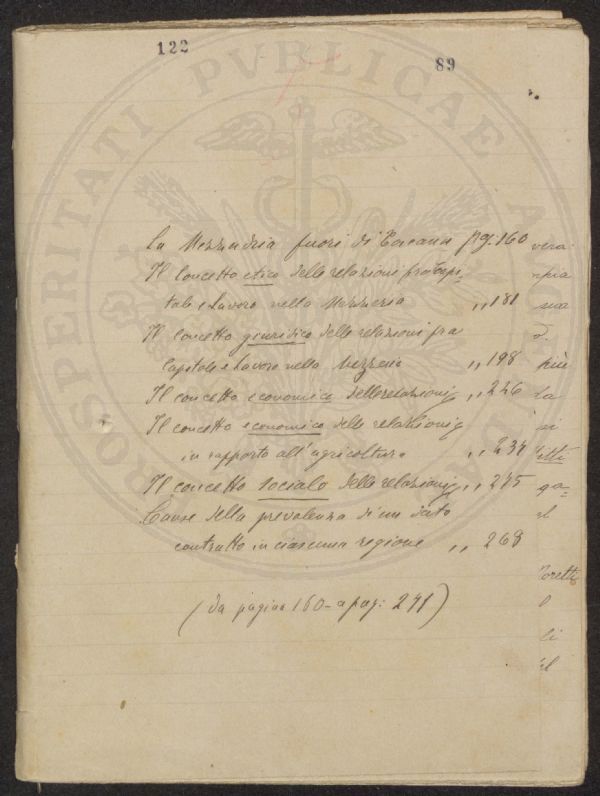 122
89
PROSPERITATI PVBLICAE AVGENDAE
La Mezzadria fuori di Toscana pg: 160
Il concetto etico delle relazioni fra Capi-
tale e Lavoro nella Mezzeria " 181
Il concetto giuridico delle relazioni fra
Capitale e Lavoro nella Mezzeria " 198
Il concetto economico delle relazioni " 226
Il concetto economico delle relazioni
in rapporto all'agricoltura " 234
Il concetto sociale delle relazioni " 245
Cause della prevalenza di un dato
contratto in ciascuna regione " 268
(da pagina 160 - a pag: 271)